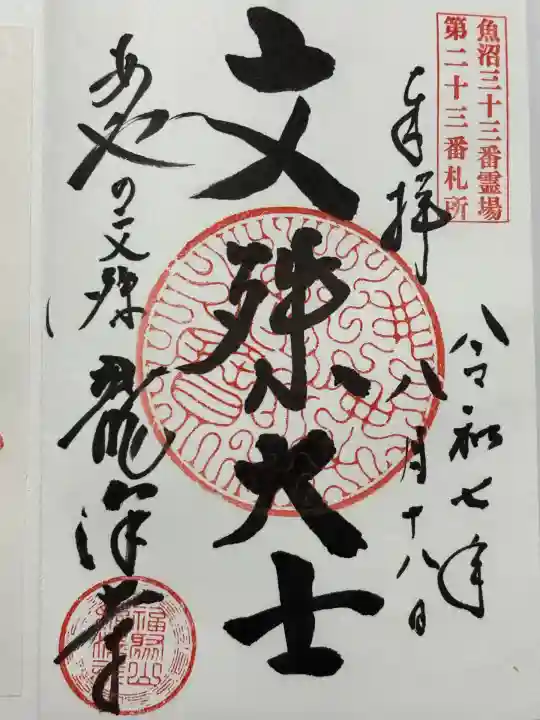 魚沼三十三番霊場
第二十三番札所
奉拝
令和七年
八月十八日
文殊大士
あやの文殊
龍澤寺
福聚山